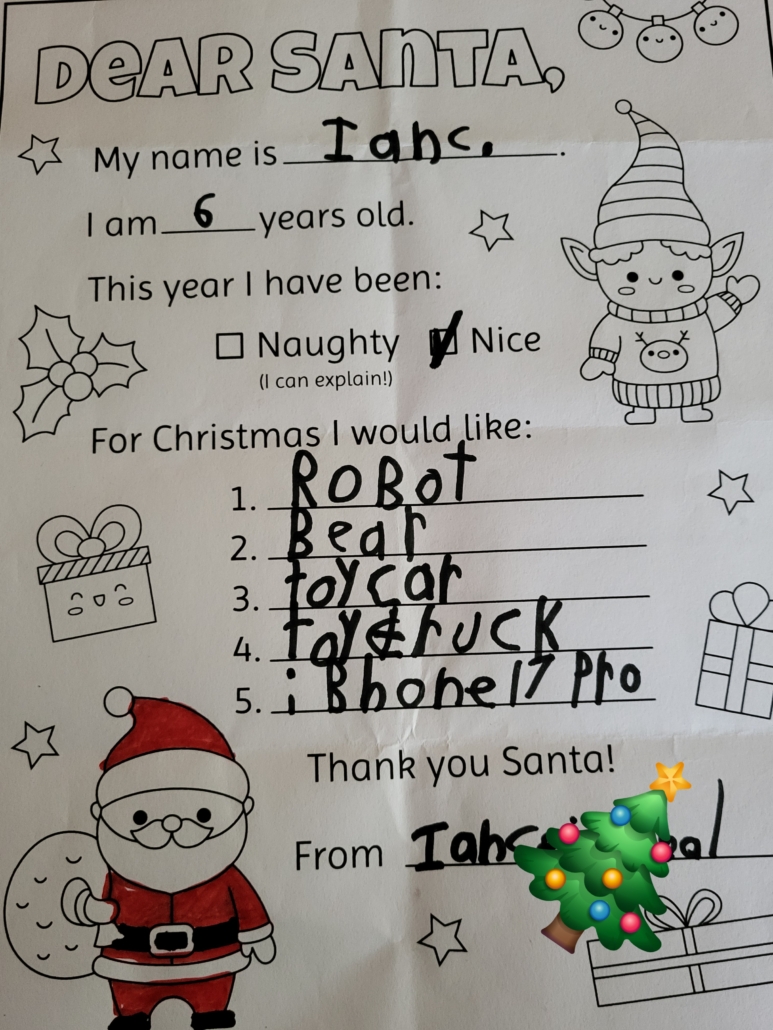 DeAR SANTA,
My name is Ianc.
I am 6 years old.
This year I have been:
Naughty Nice
(I can explain!)
For Christmas I would like:
1. ROBOt
2. Bear
3. toy car
4. toy truck
5. iBhone 17 Pro
Thank you Santa!
From